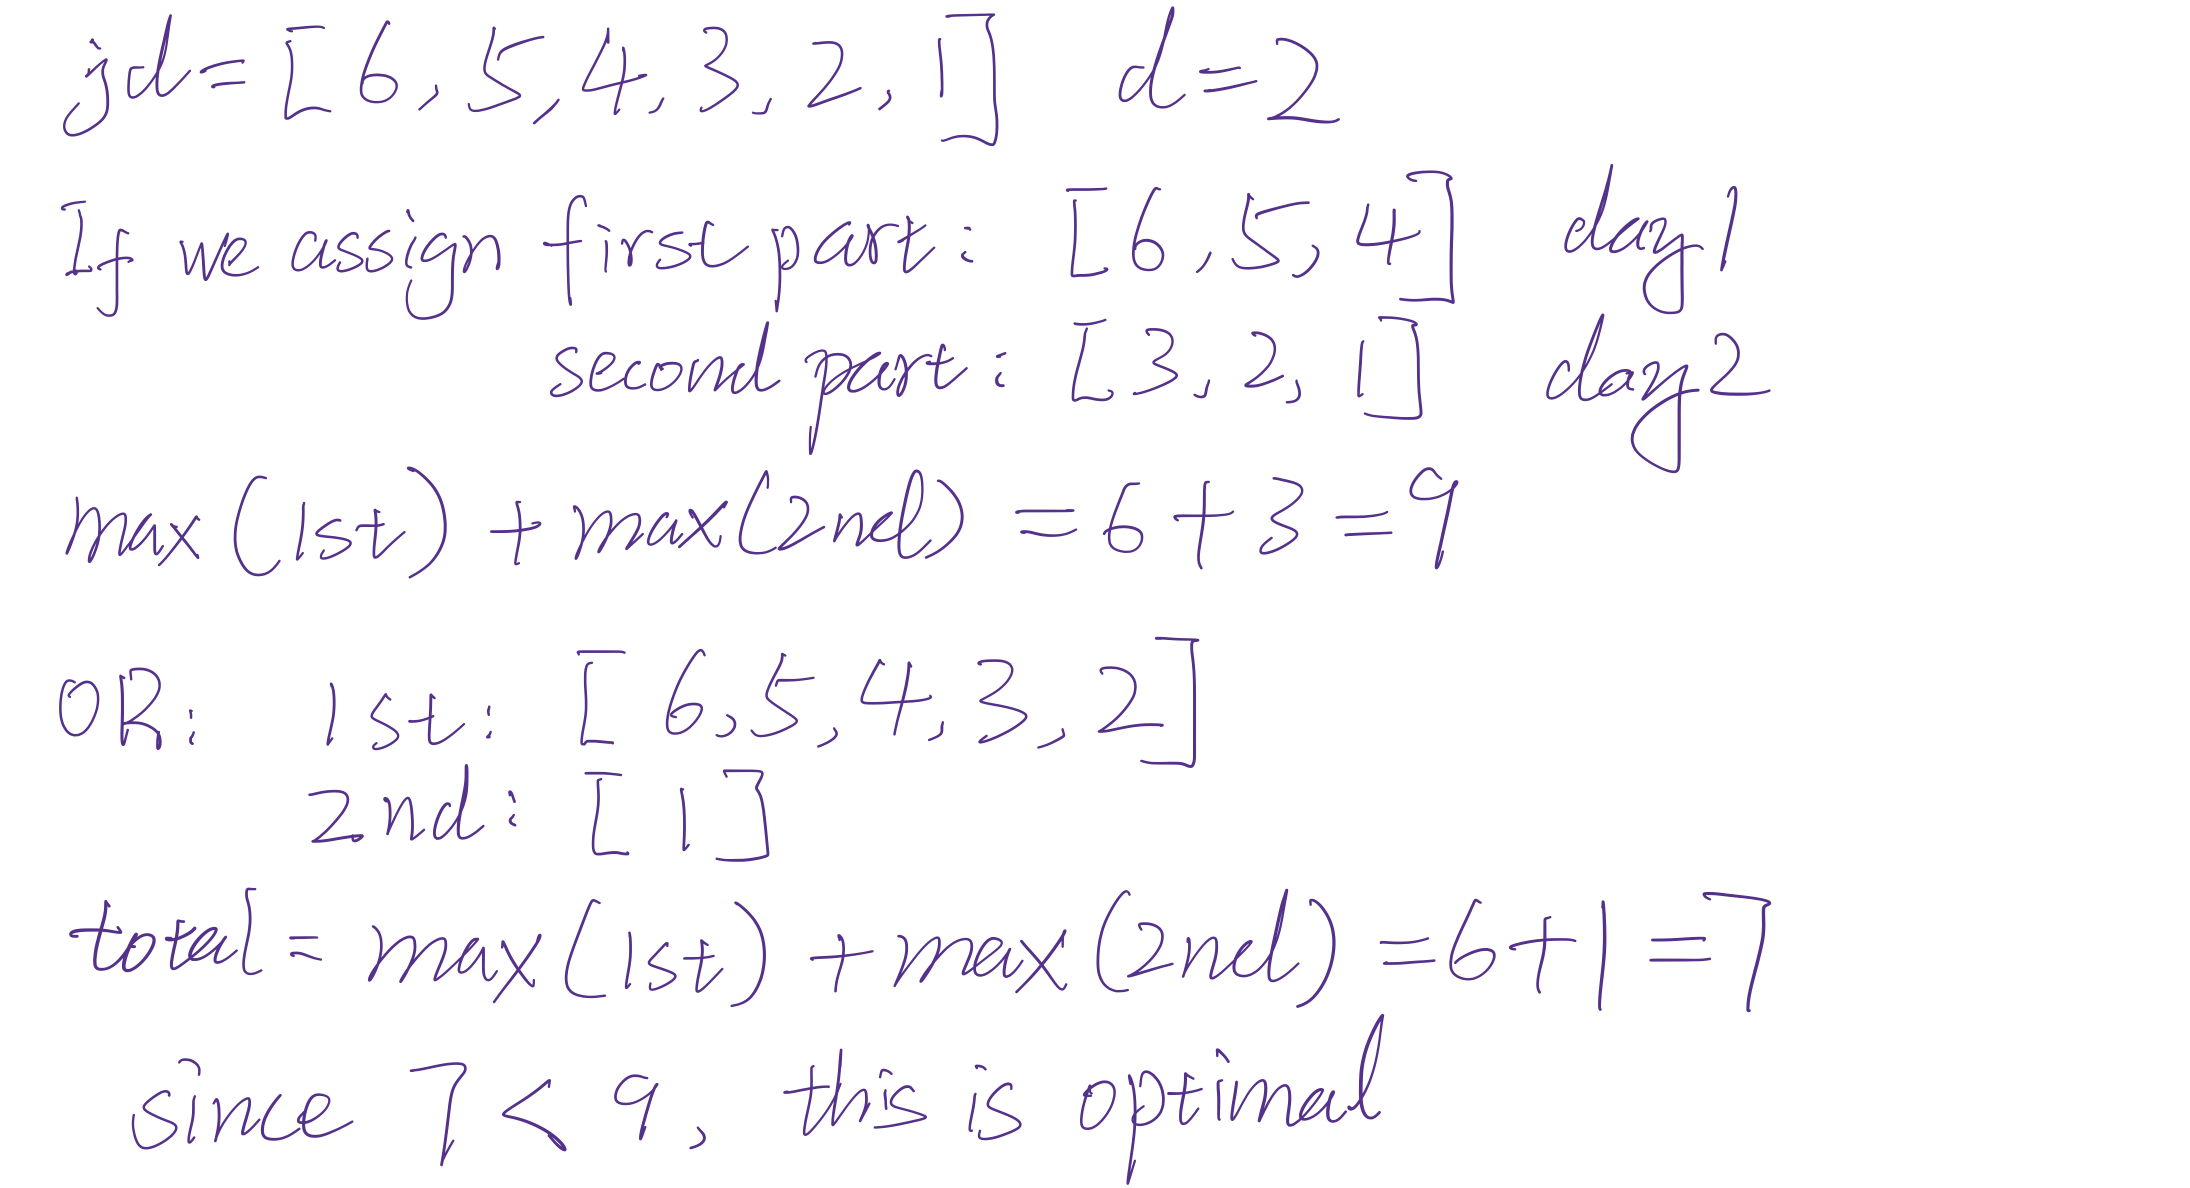 jd=[6,5,4,3,2,1] d=2
If we assign first part: [6,5,4] day1
second part: [3,2,1] day2
max(1st)+max(2nd)=6+3=9
OR: 1st: [6,5,4,3,2]
2nd: [1]
total=max(1st)+max(2nd)=6+1=7
since 7<9, this is optimal